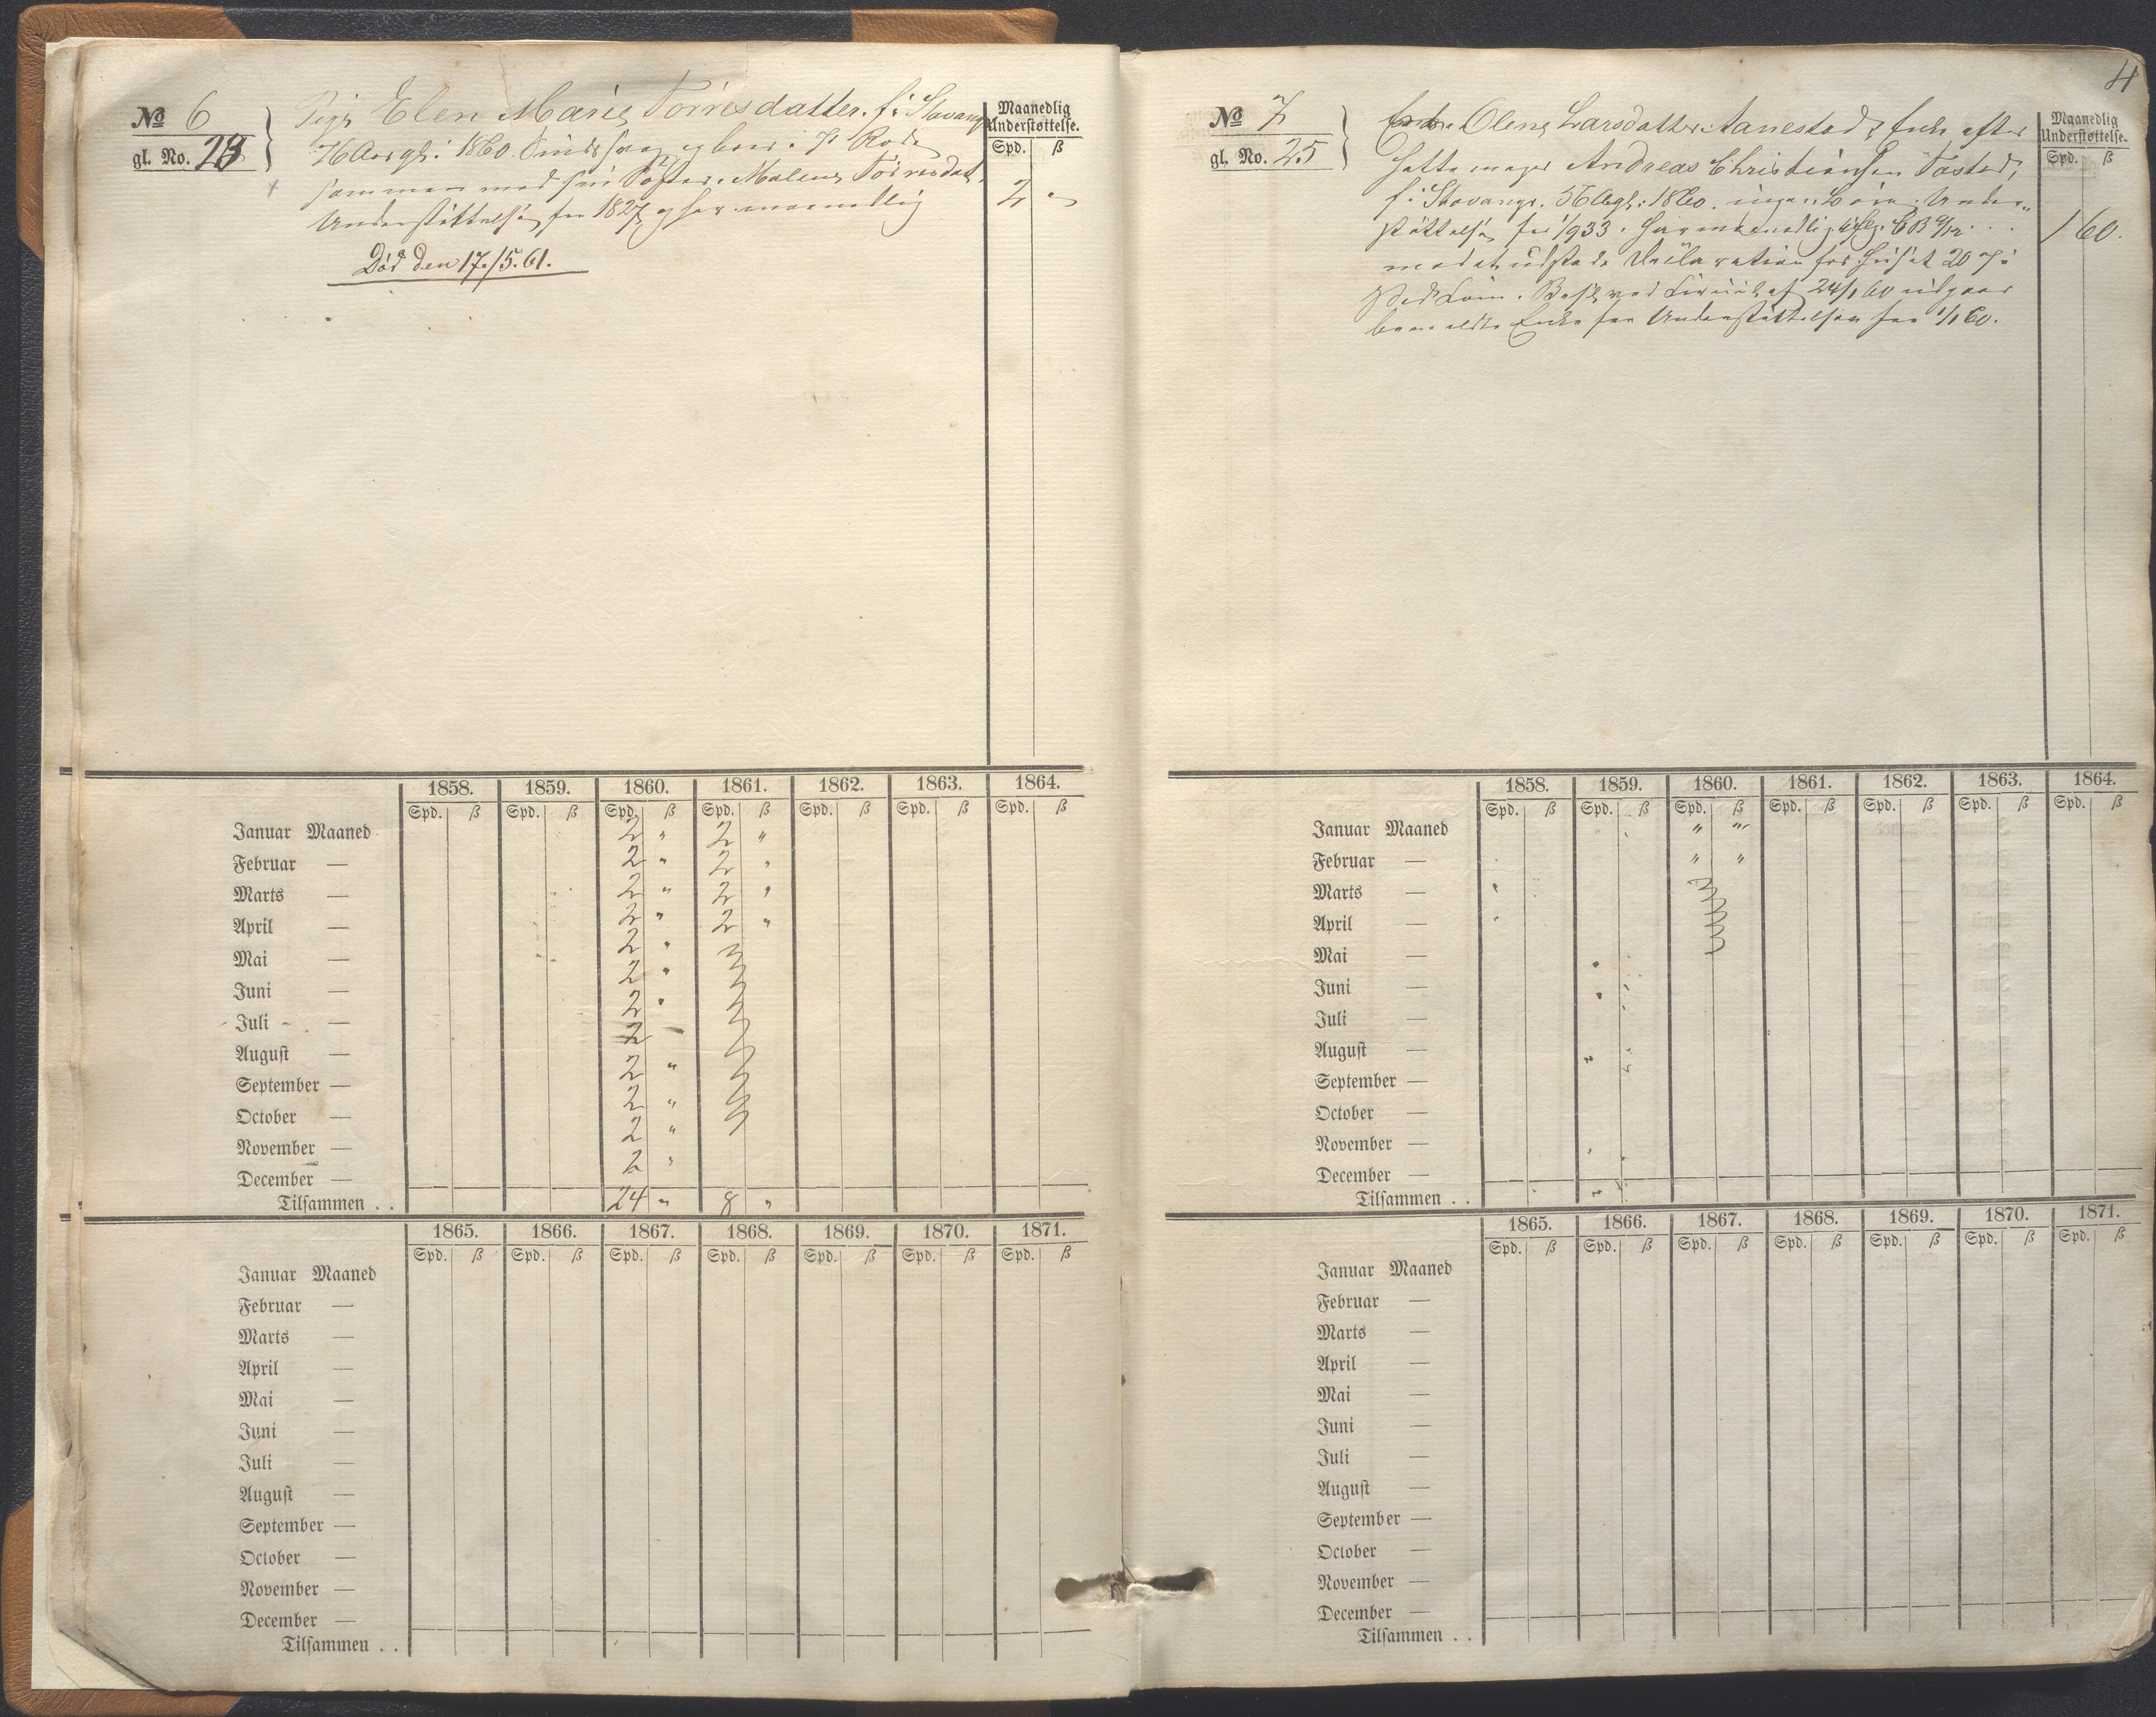 No 6
gl. No. 23
Pige Elen Marie Torresdatter. f. i Stavanger
76 Aar gl. i 1860. Sindssvag og boer i 7. Rode
sammen med sin Søster Malene Torresdatt.
Understøttelse fra 1827 og har maanedlig
Død den 17/5. 61.
Maanedlig
Understøttelse.
Spd. ß
2 "
1858. 1859. 1860. 1861. 1862. 1863. 1864.
Spd. ß Spd. ß Spd. ß Spd. ß Spd. ß Spd. ß Spd. ß
Januar Maaned 2 " 2 "
Februar — 2 " 2 "
Marts — 2 " 2 "
April — 2 " 2 "
Mai — 2 "
Juni — 2 "
Juli — 2 "
August — 2 "
September — 2 "
October — 2 "
November — 2 "
December — 2 "
Tilsammen . . 24 " 8 "
1865. 1866. 1867. 1868. 1869. 1870. 1871.
Spd. ß Spd. ß Spd. ß Spd. ß Spd. ß Spd. ß Spd. ß
Januar Maaned
Februar —
Marts —
April —
Mai —
Juni —
Juli —
August —
September —
October —
November —
December —
Tilsammen . .
4
No 7
gl. No. 25
Olene Larsdatter Aanestad, Enke efter
Hattemager Andreas Christiansen Tastad,
f. i Stavanger. 56 A gl. i 1860. ingen Børn. Under-
støttelse fra 1/9 33. Har maanedlig
mod at udstede Declaration for Huset 207 i
Beslutning af 24/1 60 udgaar
bemeldte Enke fra Understøttelsen fra 1/1 60.
Maanedlig
Understøttelse.
Spd. ß
1 60.
1858. 1859. 1860. 1861. 1862. 1863. 1864.
Spd. ß Spd. ß Spd. ß Spd. ß Spd. ß Spd. ß Spd. ß
Januar Maaned " "
Februar — " "
Marts —
April —
Mai —
Juni —
Juli —
August —
September —
October —
November —
December —
Tilsammen . .
1865. 1866. 1867. 1868. 1869. 1870. 1871.
Spd. ß Spd. ß Spd. ß Spd. ß Spd. ß Spd. ß Spd. ß
Januar Maaned
Februar —
Marts —
April —
Mai —
Juni —
Juli —
August —
September —
October —
November —
December —
Tilsammen . .